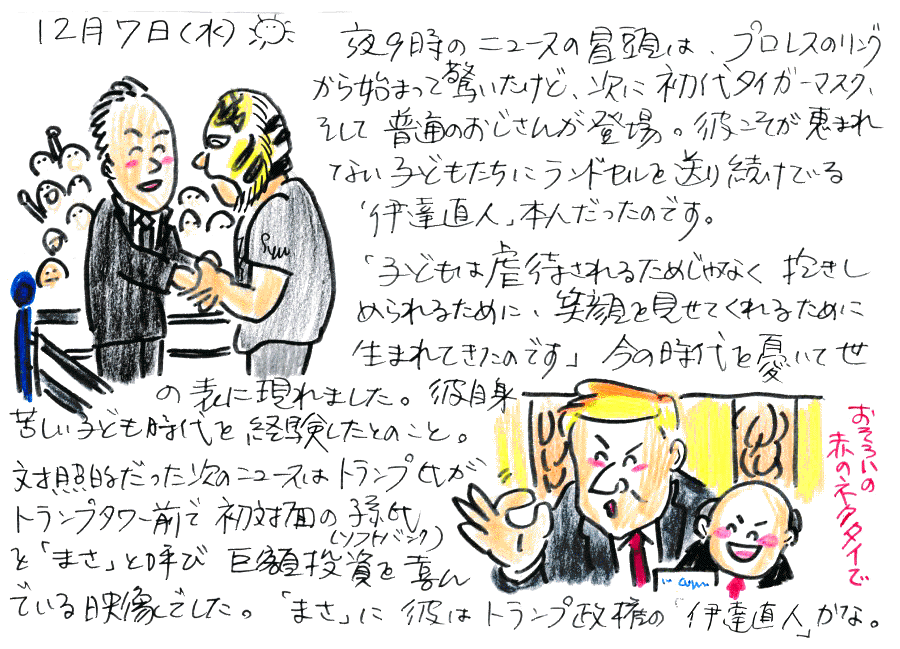 12月7日(水)
夜9時のニュースの冒頭は、プロレスのリング
から始まって驚いたけど、次に初代タイガーマスク、
そして普通のおじさんが登場。彼こそが恵まれ
ない子どもたちにランドセルを送り続けている
「伊達直人」本人だったのです。
「子どもは虐待されるためじゃなく抱きし
められるために、笑顔を見せてくれるために
生まれてきたのです」今の時代を憂いて世
の表に現れました。彼自身
苦しい子ども時代を経験したとのこと。
対照的だった次のニュースはトランプ氏が
トランプタワー前で初対面の孫氏
(ソフトバンク)
を「まさ」と呼び巨額投資を喜ん
でいる映像でした。「まさ」に彼はトランプ政権の「伊達直人」かな。
おそろいの
赤のネクタイで
Ryu